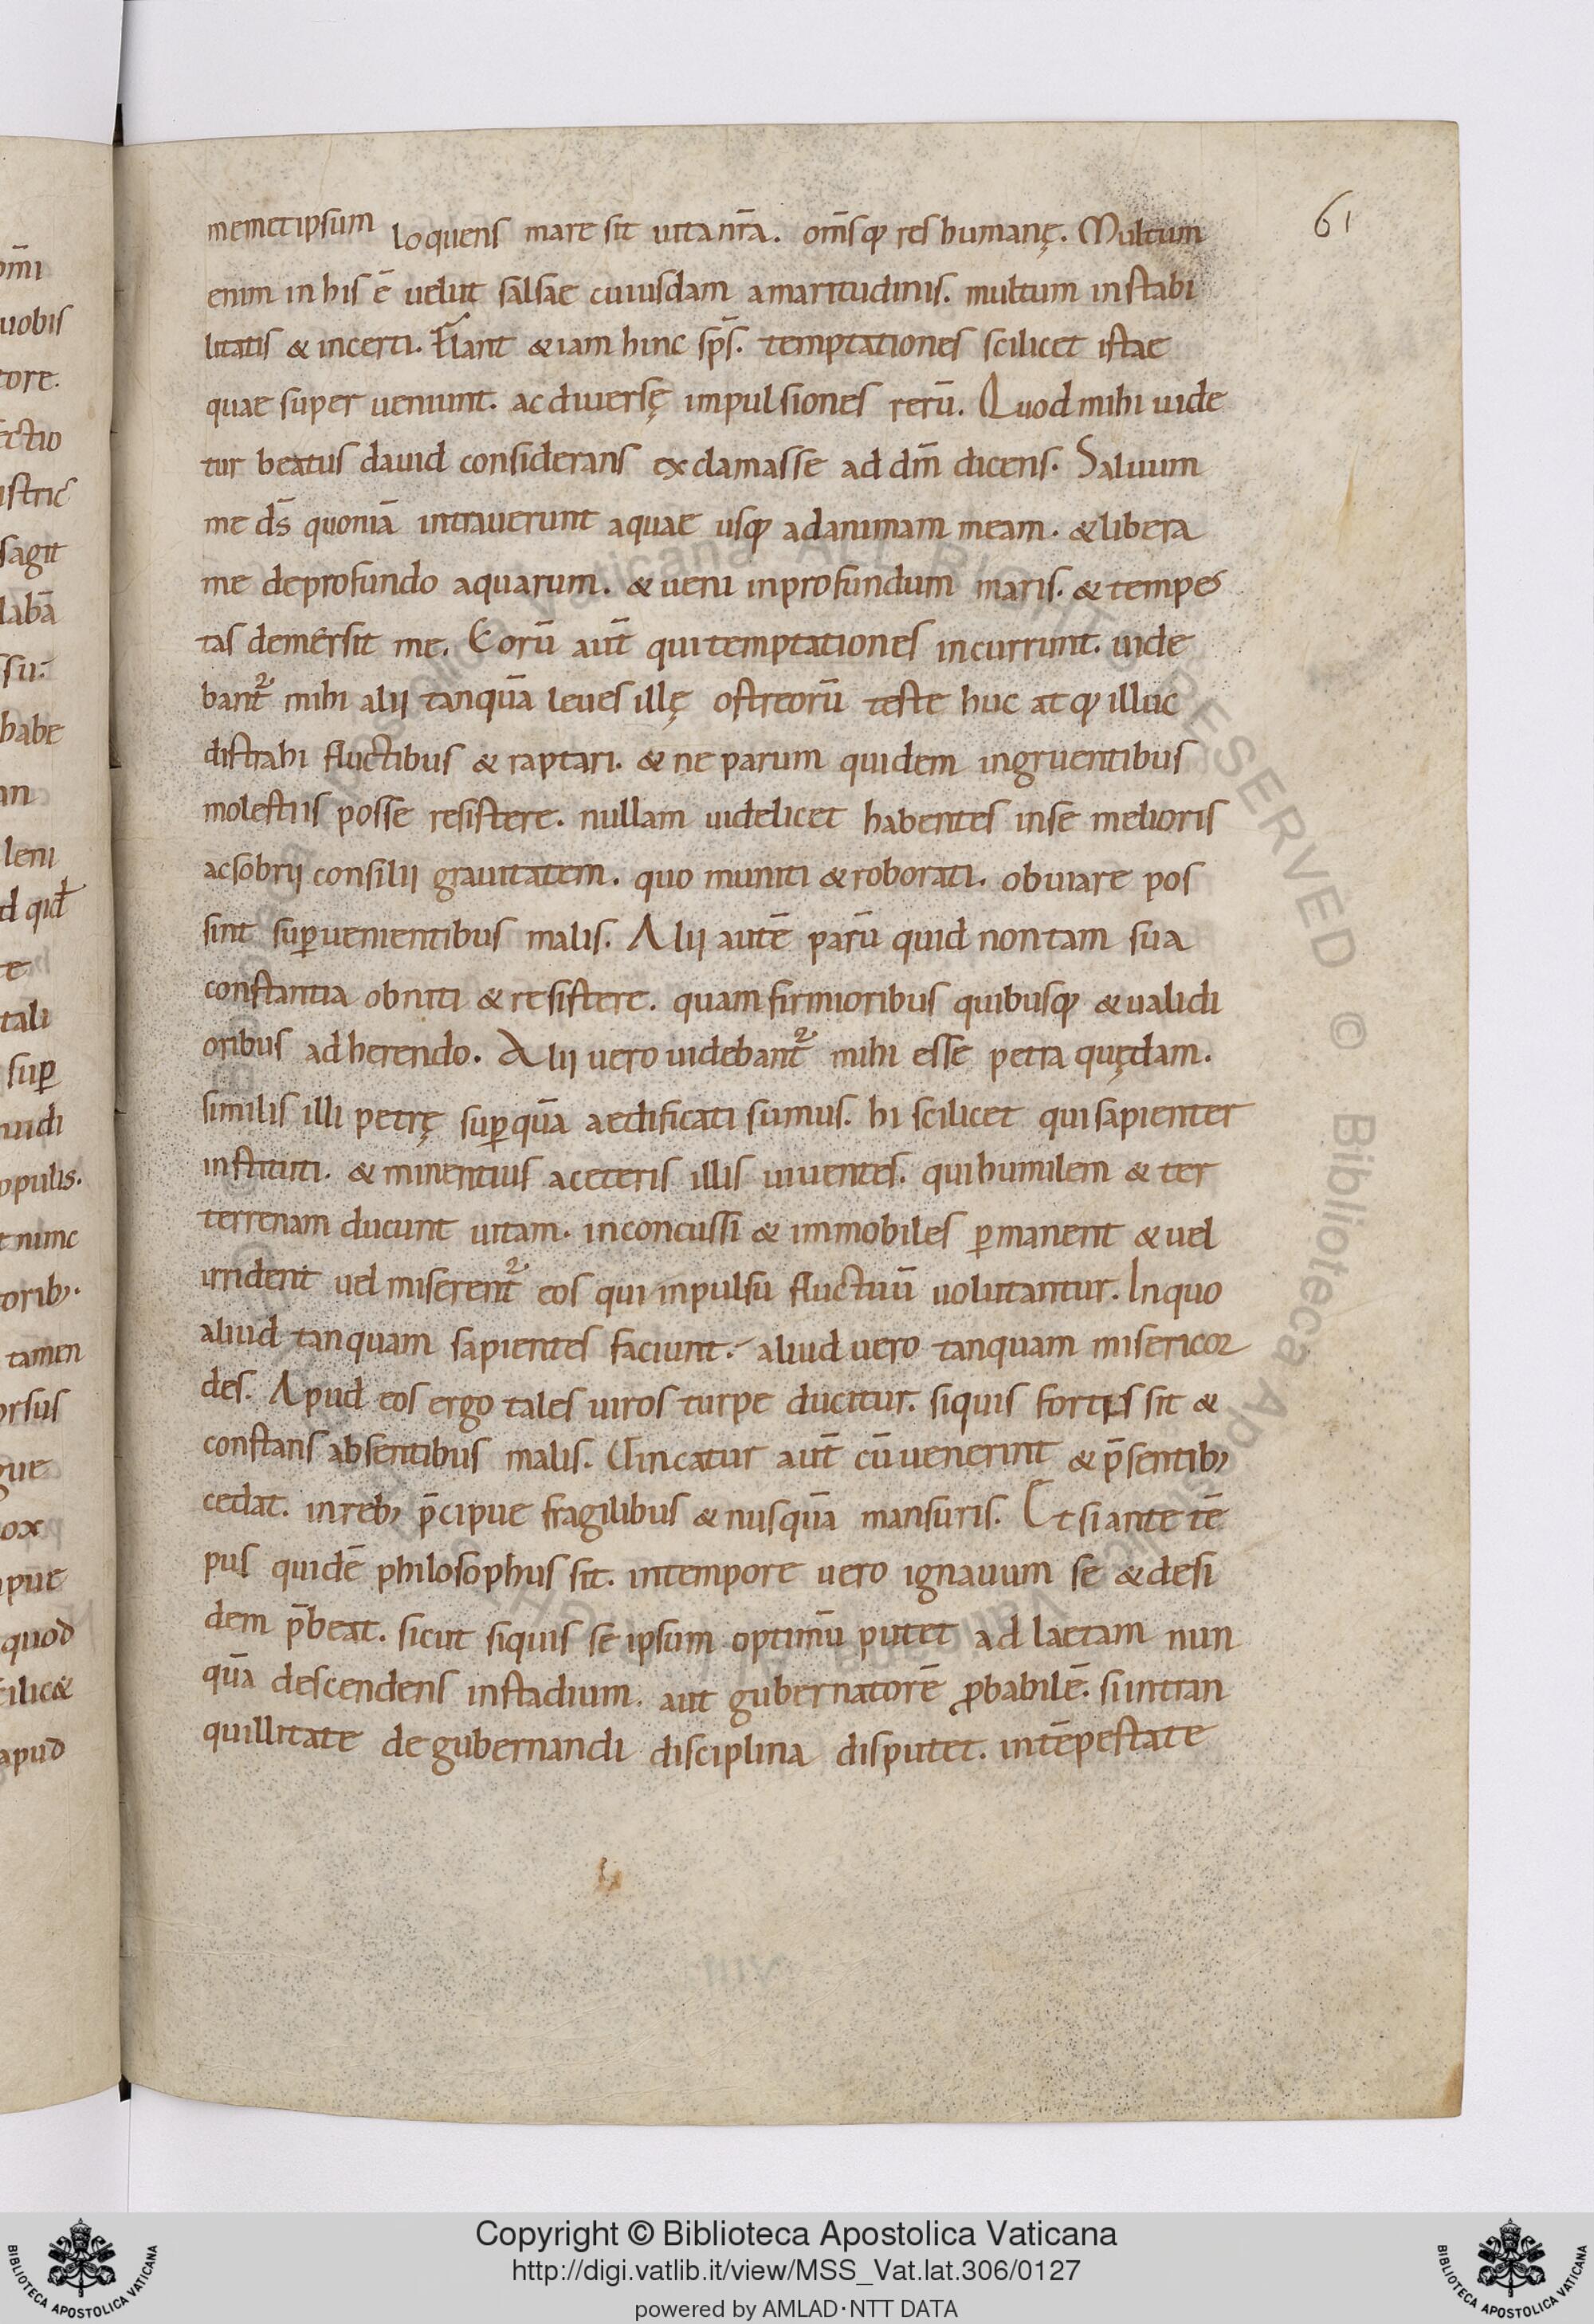 61
memetipsum loquens mare sit uita nr̄a. om̄sq; res humanę. Multum
enim in his ē uelut salsae cuiusdam amaritudinis. multum instabi
litatis & incerti. Flant & iam hinc sp̄s. temptationes scilicet istae
quae super ueniunt. ac diuersę impulsiones rerū. Quod mihi uide
tur beatus dauid considerans exclamasse ad dm̄ dicens. Saluum
me ds̄ quoniā intrauerunt aquae usq; ad animam meam. & libera
me de profundo aquarum. & ueni in profundum maris. & tempes
tas demersit me. Eorū aut̄ qui temptationes incurrunt. uide
bant᷑ mihi alii tanquā leues illę ostreorū teste huc atq; illuc
distrahi fluctibus & raptari. & ne parum quidem ingruentibus
molestiis posse resistere. nullam uidelicet habentes in se melioris
ac sobrii consilii grauitatem. quo muniti & roborati. obuiare pos
sint suꝑuenientibus malis. Alii autē parū quid non tam sua
constantia obniti & resistere. quam firmioribus quibusq; & ualidi
oribus adherendo. Alii uero uidebant᷑ mihi esse petra quędam.
similis illi petrę suꝑ quā aedificati sumus. hi scilicet qui sapienter
instituti. & minentius a ceteris illis uiuentes. qui humilem & ter
terrenam ducunt uitam. inconcussi & immobiles ꝑmanent & uel
irrident uel miserent᷑ eos qui inpulsu fluctuū uolutantur. In quo
aliud tanquam sapientes faciunt. aliud uero tanquam misericor
des. Apud eos ergo tales uiros turpe ducitur. siquis fortis sit &
constans absentibus malis. Uincatur aut̄ cū uenerint & p̄sentib;
cedat. in reb; p̄cipue fragilibus & nusquā mansuris. Et si ante tē
pus quidē philosophus sit. in tempore uero ignauum se & desi
dem p̄beat. sicut siquis se ipsum optimū putet ad laetam nun
quā descendens in stadium. aut gubernatorē ꝓbabilē. si in tran
quillitate de gubernandi disciplina disputet. in tēpestate
Copyright © Biblioteca Apostolica Vaticana
http://digi.vatlib.it/view/MSS_Vat.lat.306/0127
powered by AMLAD·NTT DATA